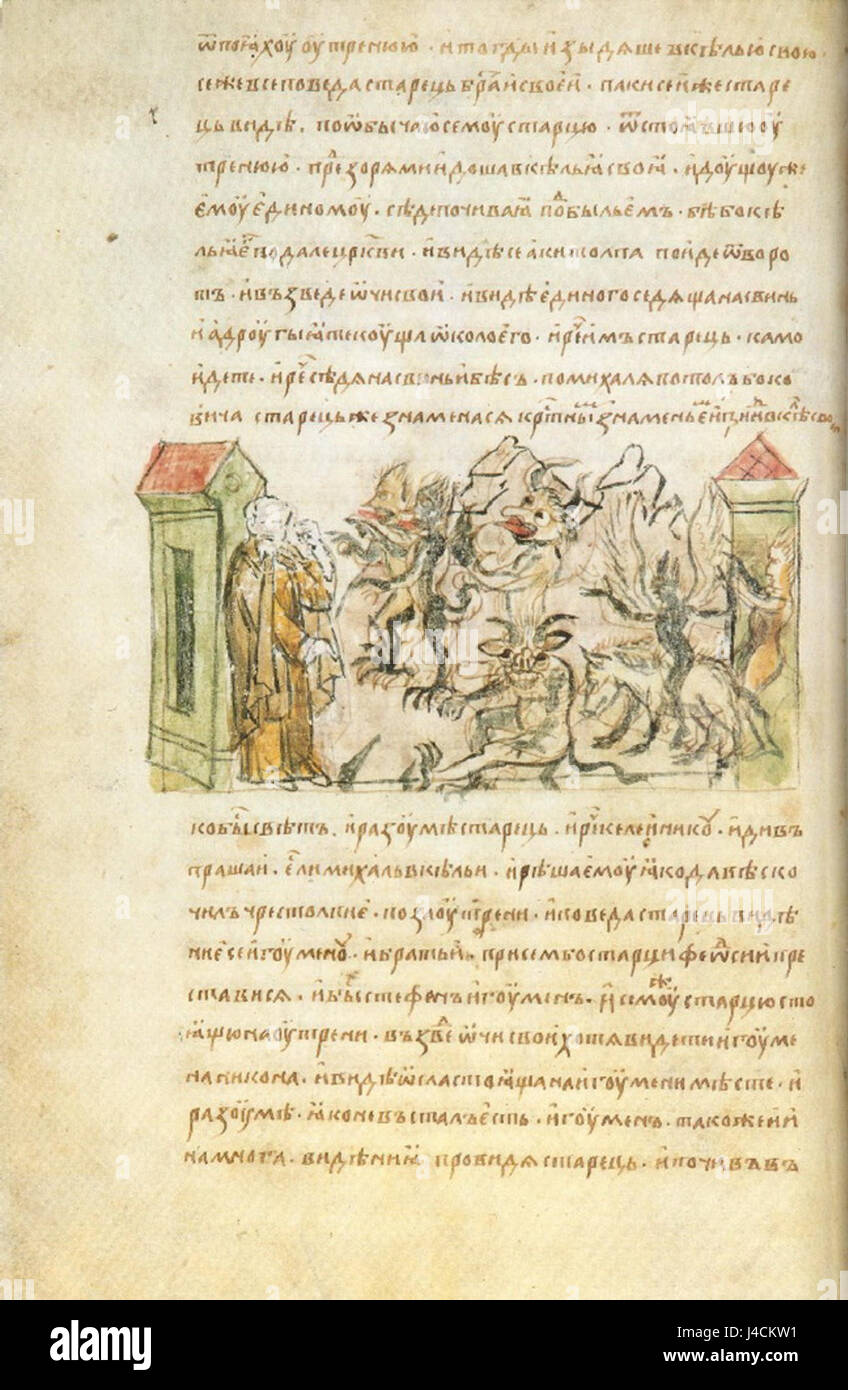 ѿпоꙗхоу оутренюю · и тогды изыдяше в кѣлью свою
се же всеповеда старець брат҃и своей · паки сей же старе
ць видѣ · по ѡбычаю семоу старцю · ѿстоꙗвшю оу
тренюю · пре зорями идоша в кѣльꙗ своꙗ · идоущоу же
ємоу єдиномоу · сѣде почиваꙗ по былъемъ · бѣ бо кѣ
льꙗ єго подале цркви · и видѣ се аки толпа пойде ѿ воро
тъ · и възведе ѡчи свои · и видѣ єдиного седяща на свинь
и а дроугыꙗ текоуща ѡколо єго · и реч им старець · камо
идете · и реч сѣдя на свиньи бѣсъ · по михаля по толъбоко
вича старець же знаменася крстным знаменьем и приде в кѣлью свою
ко бысть свѣтъ · и разоумѣ старець · и реч келейникоу · иди въ
прашай · єсть ли михаль в кѣльи · и рѣша ємоу ꙗко давѣ ско
чилъ чрес толпиє · по заоутрени · и поведа старець видѣ
ниє се игоуменоу · и братьи · при сем бо старци феѡсий пре
ставися · и бысть стефенъ игоумен · и семоу же старцю сто
ꙗщю на оутрени · възведе ѡчи свои хотя видети игоуме
на никона · и видѣ ѡсла стоꙗща на игоумени мѣсте · и
разоумѣ · ꙗко не въсталъ єсть · игоумен · тако же и и
на многа · видѣниꙗ провидя старець · и почивъ в
alamy
Image ID: J4CKW1
www.alamy.com